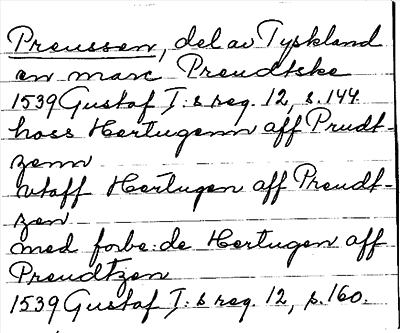 Preussen, del av Tyskland
en marc Preudtske
1539 Gustaf I:s reg. 12, s. 144.
hoss Hertugenn aff Prudt-
zenn
utaff Hertugen aff Preudt-
zen
med forbe:de Hertugen aff
Preudtzen
1539 Gustaf I:s reg. 12, p. 160.